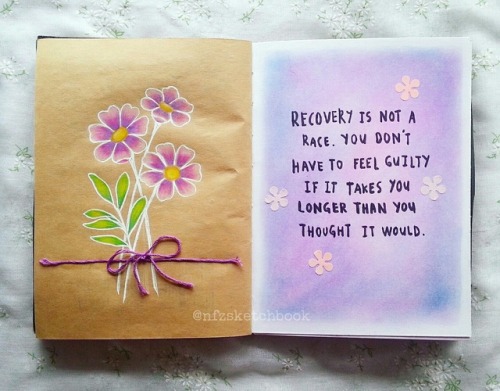 RECOVERY IS NOT A
RACE. YOU DON'T
HAVE TO FEEL GUILTY
IF IT TAKES YOU
LONGER THAN YOU
THOUGHT IT WOULD.
@nfzsketchbook